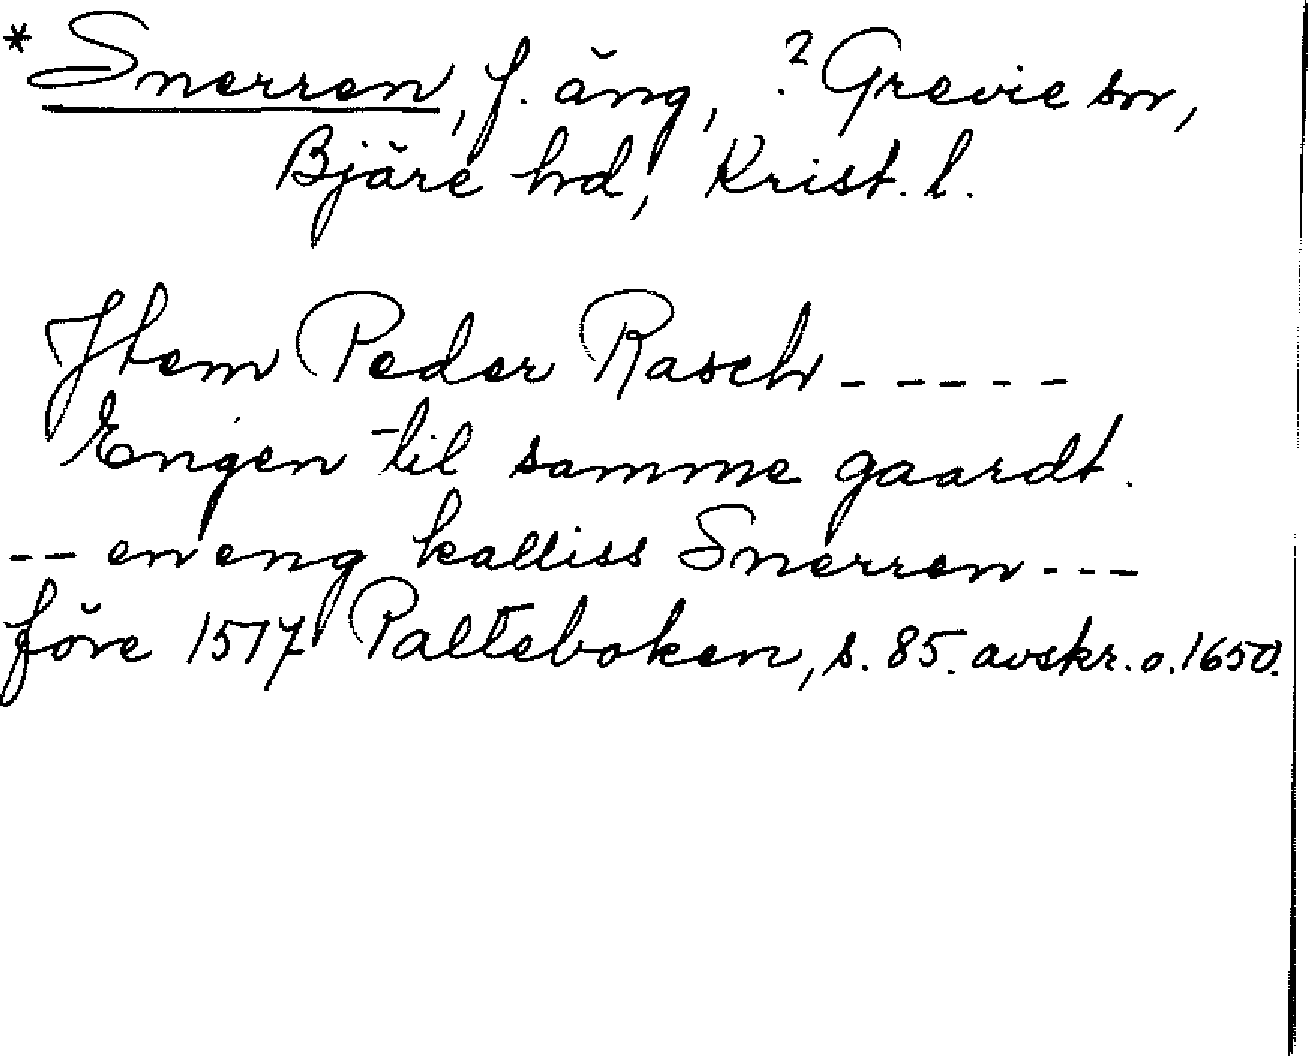 *Snerren, f. äng, ? Grevie sn,
Bjäre hd, Krist. l.
Jtem Peder Rasch - - - - -
Engen til samme gaardt.
-- en eng kalliss Snerren ---
före 1517 Palteboken, s. 85. avskr. o. 1650.